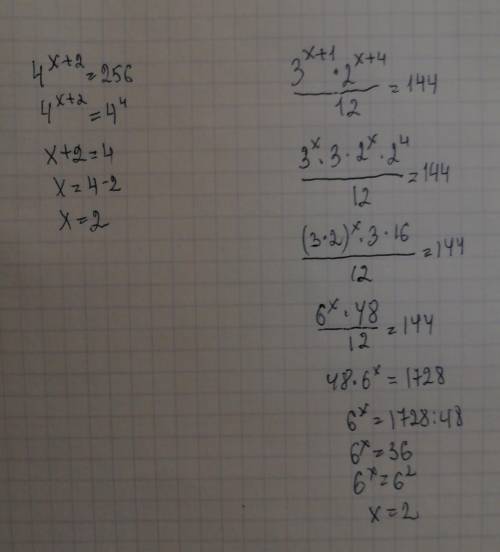 4^{x+2} = 256
4^{x+2} = 4^4
x+2=4
x=4-2
x=2
\frac{3^{x+1} \cdot 2^{x+4}}{12} = 144
\frac{3^x \cdot 3 \cdot 2^x \cdot 2^4}{12} = 144
\frac{(3 \cdot 2)^x \cdot 3 \cdot 16}{12} = 144
\frac{6^x \cdot 48}{12} = 144
48 \cdot 6^x = 1728
6^x = 1728:48
6^x = 36
6^x = 6^2
x=2